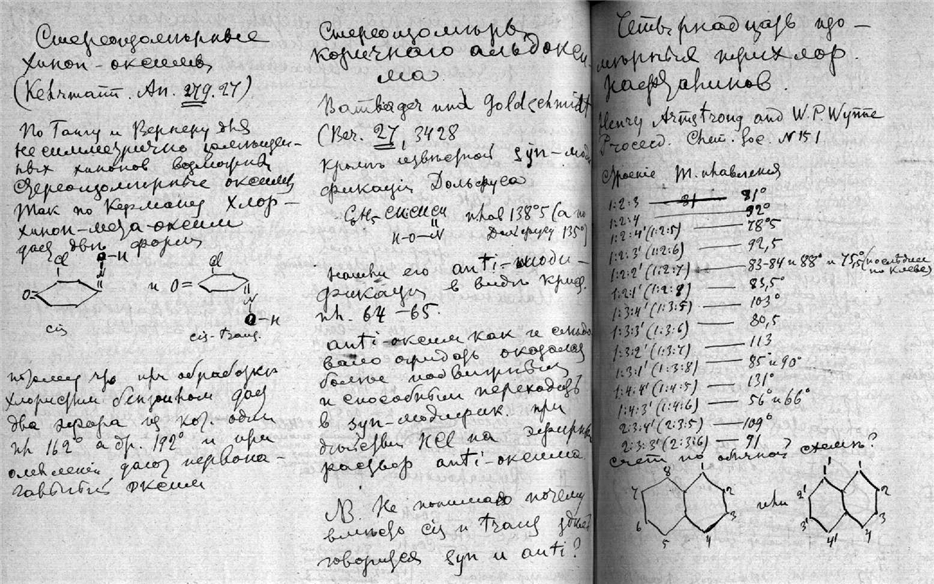 Стереоизомерные
хинон-оксимы
(Kehrmann. An. 279.27)
По Ганчу и Вернеру для
несимметрично замещен-
ных хинонов возможны
стереоизомерные оксимы
Так по Керманну хлор-
хинон-мета-оксим
дает двѣ формы
Cl
O-H
N
O=
cis
и
O=
Cl
N
O-H
cis-trans.
потому что при обработкѣ
хлористым бензоилом дает
два эфира из кот. один
пл 162° а др. 192° и при
омылении дают первона-
чальный оксим
Стереоизомеры
коричнаго альдокси-
ма.
Bamberger und Goldschmidt
(Ber. 27, 3428
Кромѣ извѣстной syn-моди
фикаціи Дольфуса
C6H5-CHCHCH
H-O-N
плав 138°5 (а по
Дольфусу 135°)
нашли его anti-моди-
фикацію в видѣ крист.
пл. 64-65.
anti оксим как и
оказался
болѣе подвижным
и способным переходить
в syn-модифик. при
дѣйствіи HCl на эфирный
раствор anti-оксима
NB. Не понимаю почему
вмѣсто cis и trans
говорится syn и anti?
Четырнадцать изо-
мерных трихлор.
нафталинов.
Henry Armstrong and W.P. Wynne
Proceed. Chem. Soc. N 151
Строеніе Т. плавления
1:2:3 81°
1:2:4 92°
1:2:4' (1:2:5) 78°5
1:2:3' (1:2:6) 92,5
1:2:2' (1:2:7) 83-84 и 88° и 75,5 (послѣднее
по Клеве)
1:2:1' (1:2:8) 83,5
1:3:4' (1:3:5) 103°
1:3:3' (1:3:6) 80,5
1:3:2' (1:3:7) 113
1:3:1' (1:3:8) 85° и 90°
1:4:4' (1:4:5) 131°
1:4:3' (1:4:6) 56° и 66°
2:3:4' (2:3:5) 109°
2:3:3' (2:3:6) 91
счет по обычной схемѣ?
8 1
7 2
6 3
5 4
или
1' 1
2' 2
3' 3
4' 4